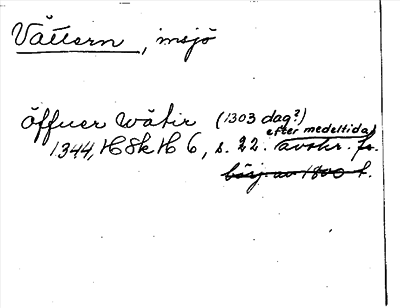 Vättern, insjö
öffuer Wätir (1303 dag?)
efter medeltida
1344, HSkH 6, s. 22. avskr. fr.
börj. av 1800-t.